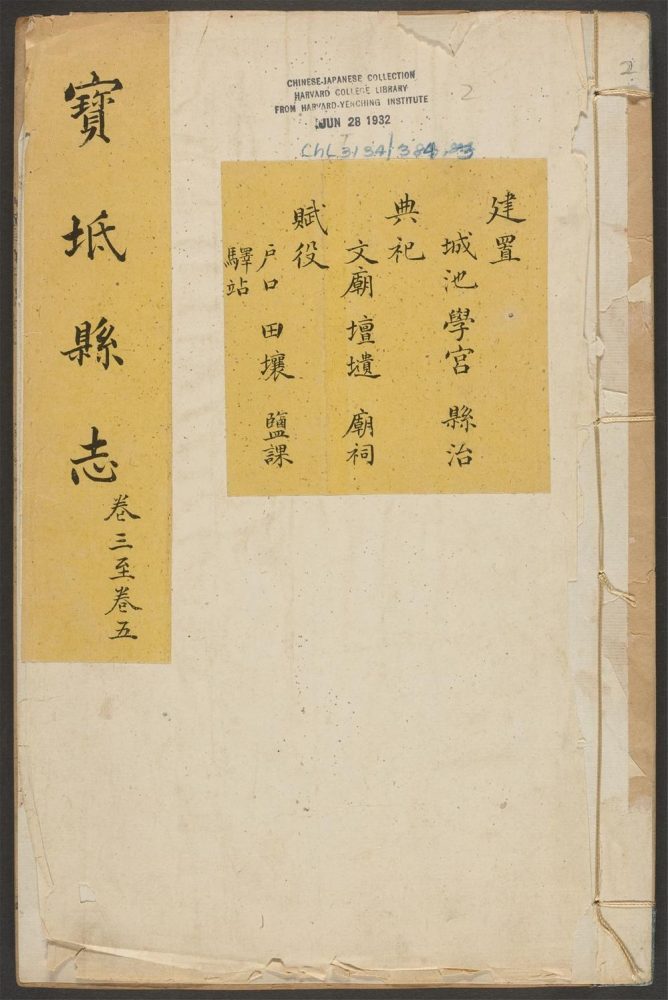 寶坻縣志
卷三至卷五
CHINESE-JAPANESE COLLECTION
HARVARD COLLEGE LIBRARY
FROM HARVARD-YENCHING INSTITUTE
JUN 28 1932
2
2
建置
城池 學宮 縣治
典祀
文廟 壇壝 廟祠
賦役
戶口 田壤 鹽課
驛站